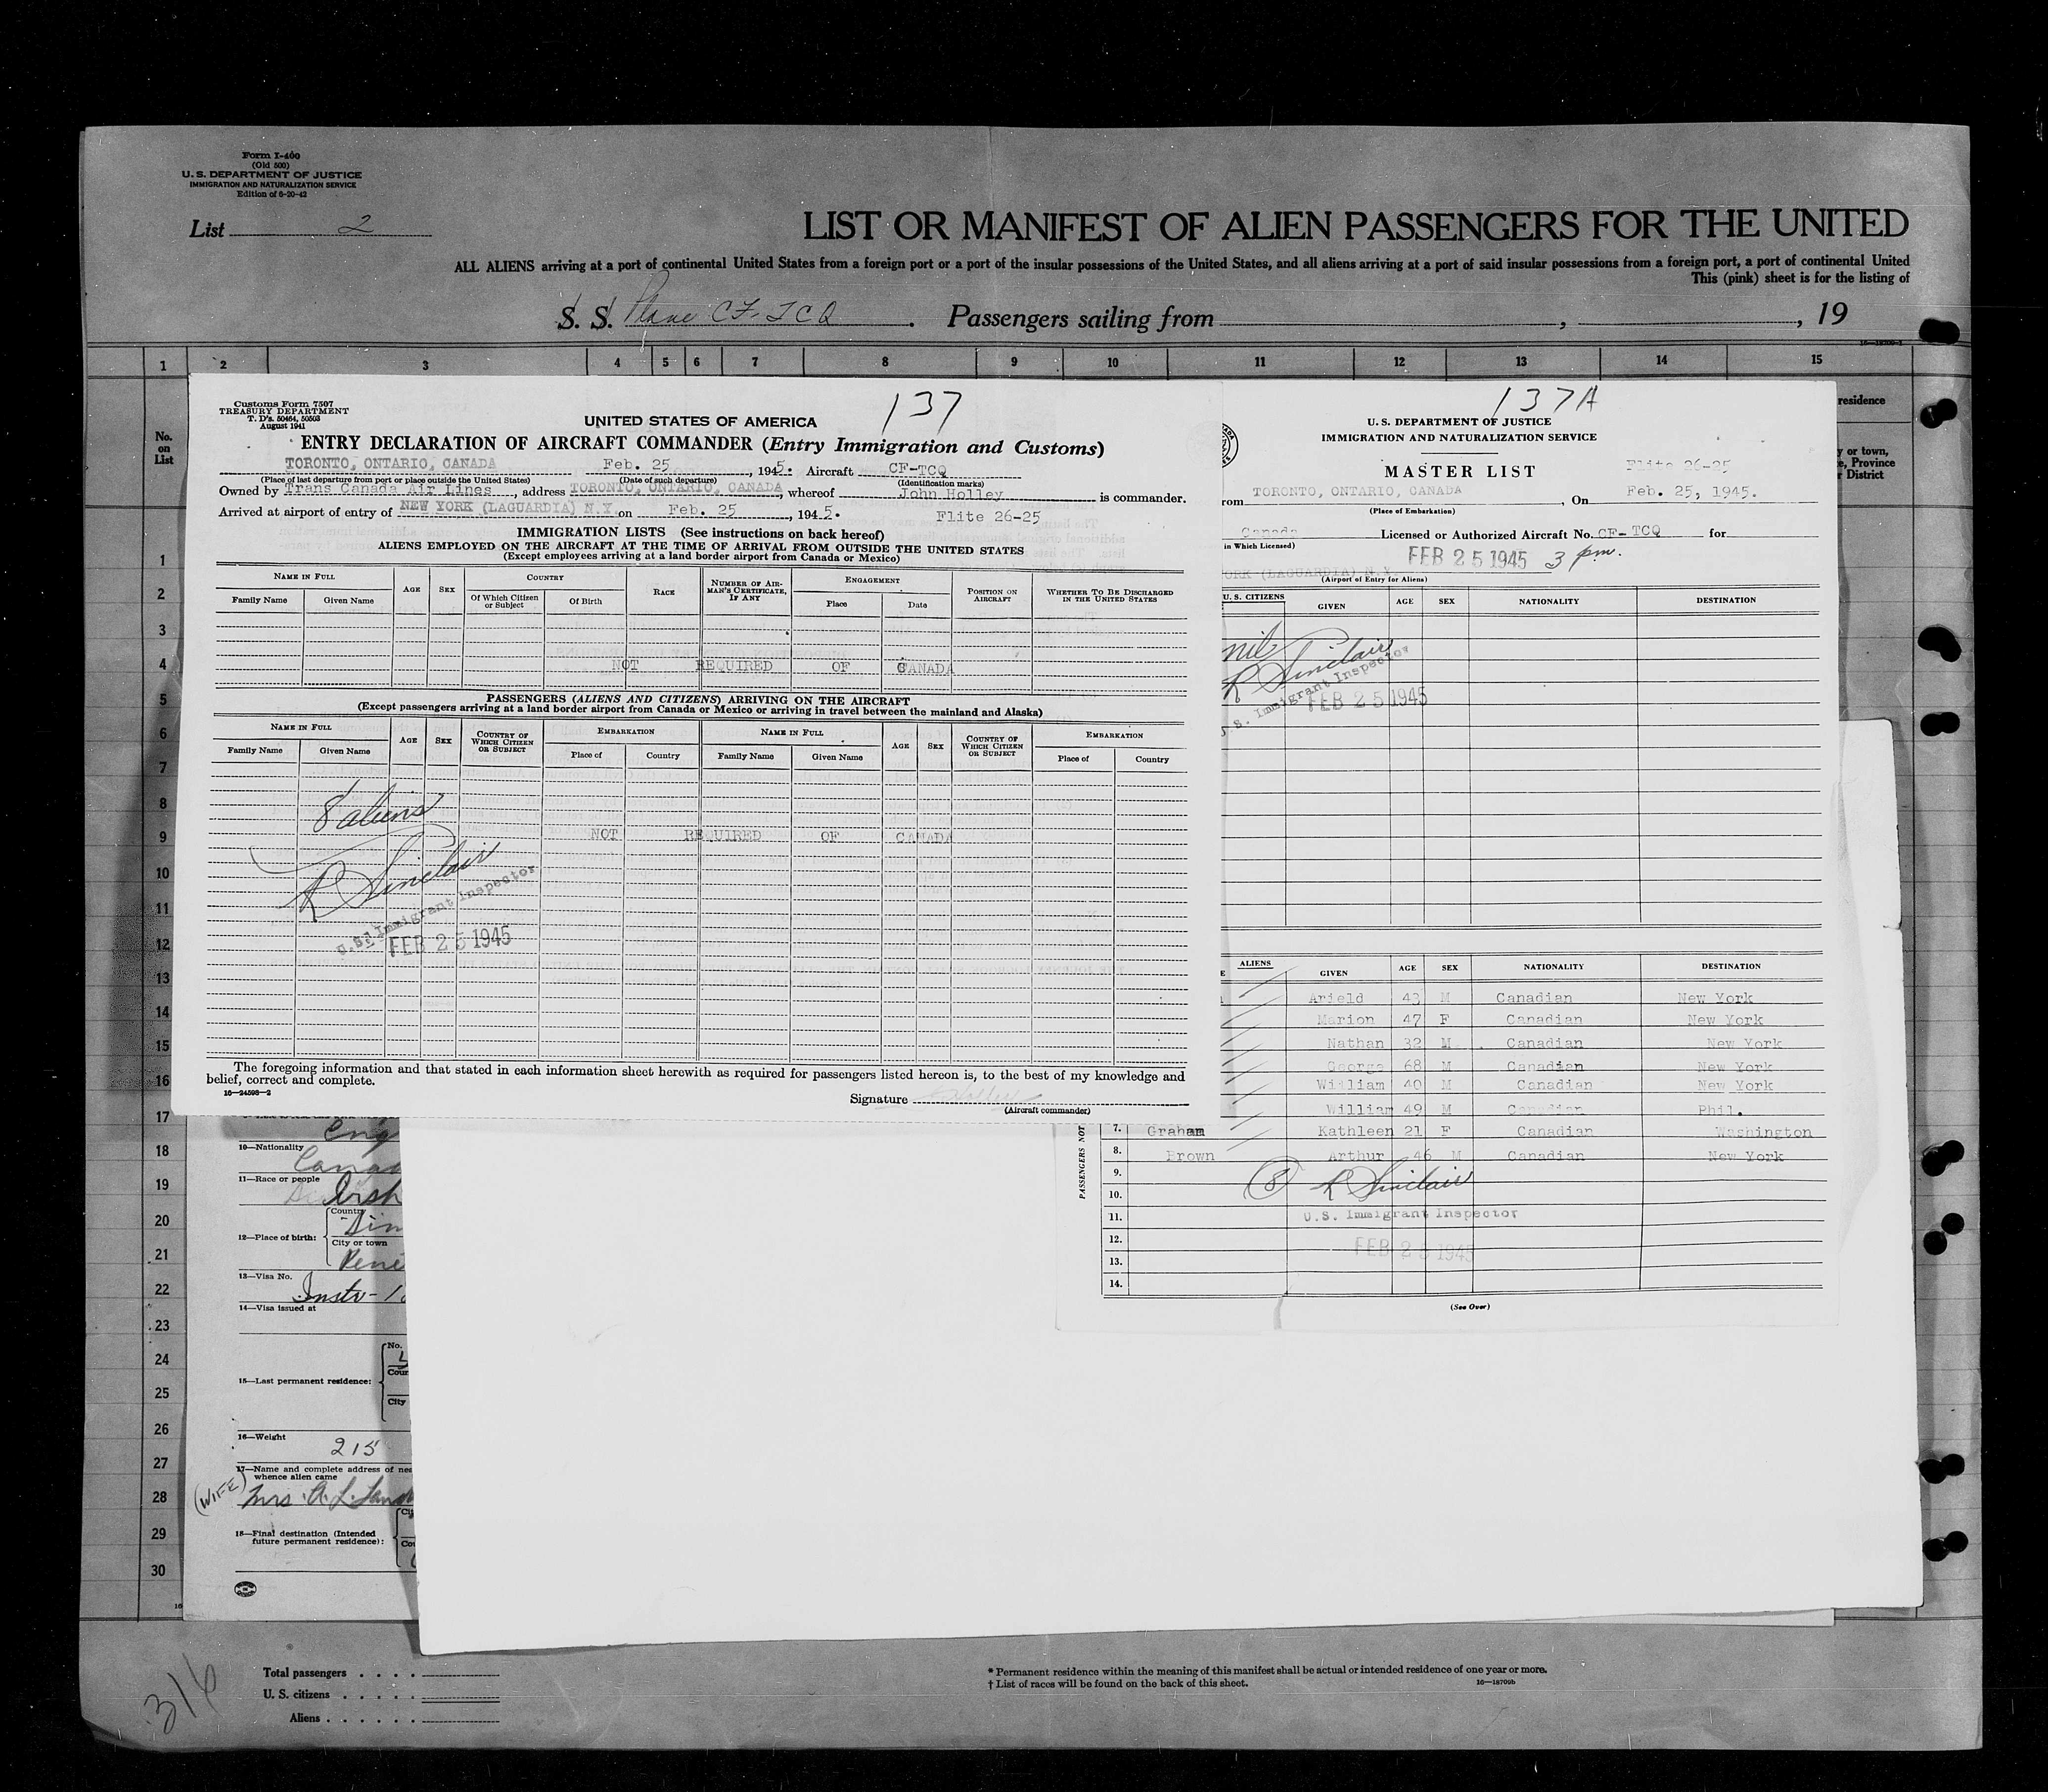 Form I-400
(Old 500)
U. S. DEPARTMENT OF JUSTICE
IMMIGRATION AND NATURALIZATION SERVICE
Edition of 6-20-42
List 2
LIST OR MANIFEST OF ALIEN PASSENGERS FOR THE UNITED
ALL ALIENS arriving at a port of continental United States from a foreign port or a port of the insular possessions of the United States, and all aliens arriving at a port of said insular possessions from a foreign port, a port of continental United
This (pink) sheet is for the listing of
S. S. Plane CF-TCQ . Passengers sailing from , , 19
1 2 3 4 5 6 7 8 9 10 11 12 13 14 15
No. on List
residence
y or town,
e, Province
r District
1
2
3
4
5
6
7
8
9
10
11
12
13
14
15
16
17
18
19
20
21
22
23
24
25
26
27
28
29
30
Customs Form 7507
TREASURY DEPARTMENT
T. D's. 50464, 50503
August 1941
137
UNITED STATES OF AMERICA
ENTRY DECLARATION OF AIRCRAFT COMMANDER (Entry Immigration and Customs)
TORONTO, ONTARIO, CANADA Feb. 25, 1945. Aircraft CF-TCQ
(Place of last departure from port or place outside the United States) (Date of such departure) (Identification marks)
Owned by Trans Canada Air Lines, address TORONTO, ONTARIO, CANADA, whereof John Holley is commander.
Arrived at airport of entry of NEW YORK (LAGUARDIA) N.Y. on Feb. 25, 1945. Flite 26-25
IMMIGRATION LISTS (See instructions on back hereof)
ALIENS EMPLOYED ON THE AIRCRAFT AT THE TIME OF ARRIVAL FROM OUTSIDE THE UNITED STATES
(Except employees arriving at a land border airport from Canada or Mexico)
NAME IN FULL AGE SEX COUNTRY RACE NUMBER OF AIRMAN'S CERTIFICATE, IF ANY ENGAGEMENT POSITION ON AIRCRAFT WHETHER TO BE DISCHARGED IN THE UNITED STATES
Family Name Given Name Of Which Citizen or Subject Of Birth Place Date
NOT REQUIRED OF CANADA
PASSENGERS (ALIENS AND CITIZENS) ARRIVING ON THE AIRCRAFT
(Except passengers arriving at a land border airport from Canada or Mexico or arriving in travel between the mainland and Alaska)
NAME IN FULL AGE SEX COUNTRY OF WHICH CITIZEN OR SUBJECT EMBARKATION NAME IN FULL AGE SEX COUNTRY OF WHICH CITIZEN OR SUBJECT EMBARKATION
Family Name Given Name Place of Country Family Name Given Name Place of Country
8 aliens
NOT REQUIRED OF CANADA
R Sinclair
U.S. Immigrant Inspector
FEB 25 1945
The foregoing information and that stated in each information sheet herewith as required for passengers listed hereon is, to the best of my knowledge and
belief, correct and complete.
16—24598-2
Signature Holley
(Aircraft commander)
137A
U. S. DEPARTMENT OF JUSTICE
IMMIGRATION AND NATURALIZATION SERVICE
MASTER LIST Flite 26-25
rom TORONTO, ONTARIO, CANADA, On Feb. 25, 1945.
(Place of Embarkation)
Canada Licensed or Authorized Aircraft No. CF-TCQ for
in Which Licensed)
FEB 25 1945 3 pm.
ORK (LAGUARDIA) N.Y.
(Airport of Entry for Aliens)
U. S. CITIZENS GIVEN AGE SEX NATIONALITY DESTINATION
nil
R Sinclair
S. Immigrant Inspector
FEB 25 1945
ALIENS GIVEN AGE SEX NATIONALITY DESTINATION
Arield 43 M Canadian New York
Marion 47 F Canadian New York
Nathan 32 M Canadian New York
George 68 M Canadian New York
William 40 M Canadian New York
William 49 M Canadian Phil.
7. Graham Kathleen 21 F Canadian Washington
8. Brown Arthur 46 M Canadian New York
PASSENGERS NOT
9.
10.
11.
12.
13.
14.
8 R Sinclair
U.S. Immigrant Inspector
FEB 25 1945
(See Over)
Eng
10—Nationality
Cana
11—Race or people
Irish
12—Place of birth:
Country
City or town
13—Visa No.
14—Visa issued at
15—Last permanent residence:
No.
City
16—Weight
215
17—Name and complete address of
whence alien came
(WIFE) Mrs. A. L.
18—Final destination (Intended
future permanent residence):
316
Total passengers
U. S. citizens
Aliens
* Permanent residence within the meaning of this manifest shall be actual or intended residence of one year or more.
† List of races will be found on the back of this sheet.
16—18700b